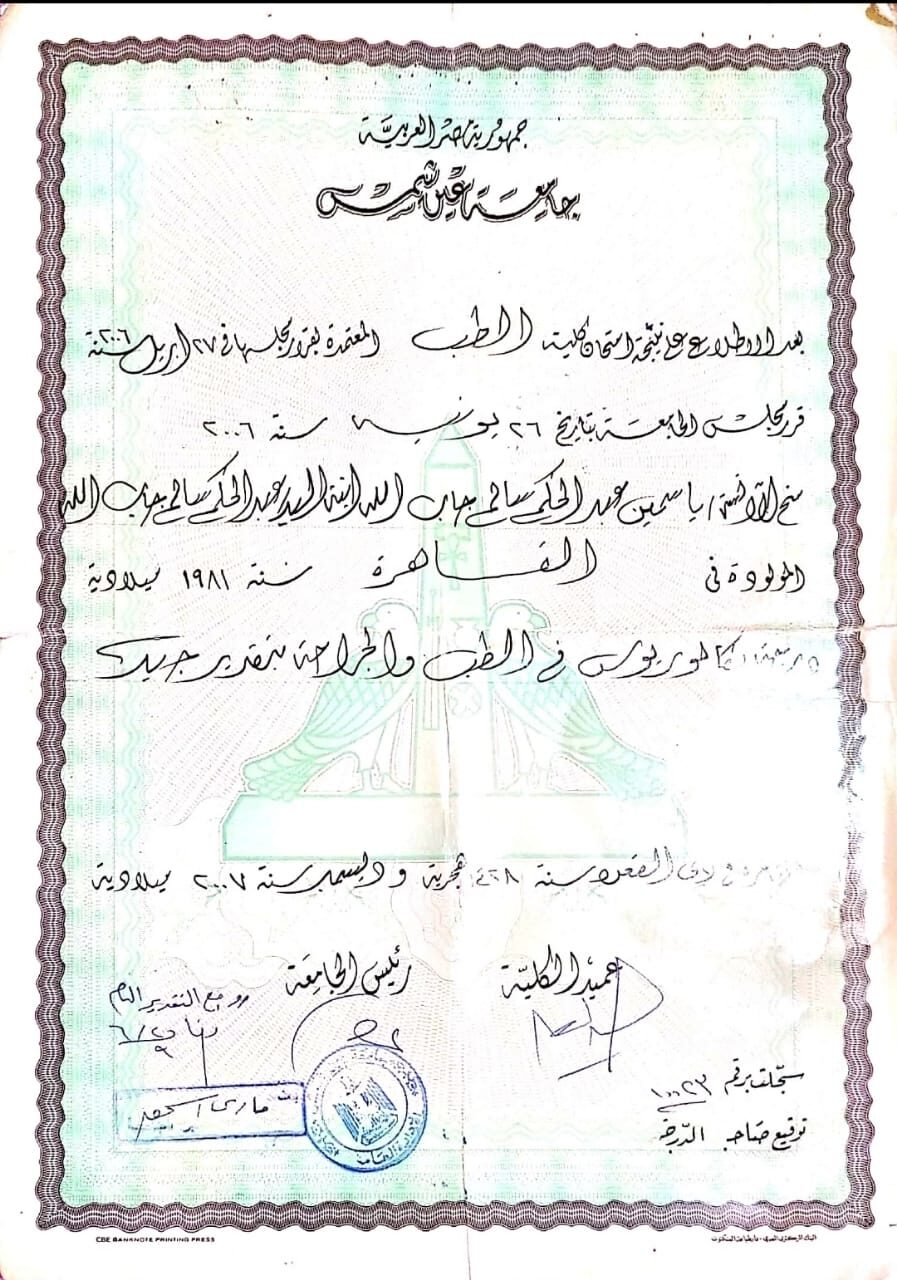 جمهورية مصر العربية
جامعة عين شمس
بعد الاطلاع على نتيجة امتحان كلية الطب المعتمدة بقرار مجلسها فى ٢٧ ابريل سنة ٢٠٠٦
قرر مجلس الجامعة بتاريخ ٢٦ يونيه سنة ٢٠٠٦
منح الآنسة / ياسمين عبد الحكم سالم جاب الله ابنة السيد عبد الحكم سالم جاب الله
المولودة فى القاهرة سنة ١٩٨١ ميلادية
درجة بكالوريوس فى الطب والجراحة بتقدير جيد
فى ذى القعدة سنة ١٤٢٨ هجرية و ديسمبر سنة ٢٠٠٧ ميلادية
عميد الكلية
رئيس الجامعة
روجع التقدير العام
سجلت برقم ١٠٠٢٣
توقيع صاحب الدرجة
CBE BANKNOTE PRINTING PRESS
البنك المركزى المصرى - دار طباعة البنكنوت